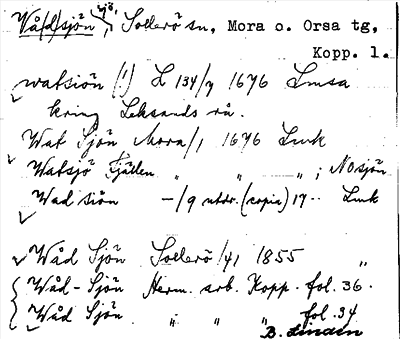 Vå(d)sjön, sjö, Sollerö sn, Mora o. Orsa tg,
Kopp. l.
watsiön (!) L 134/7 1676 Lmsa
kring Leksands rå.
Wat Sjön Mora/1 1676 Lmk
Watsjö Fjällen " " " ; NOsjön
Wad siön -/9 utdr. (copia) 17.. Lmk
Wåd Sjön Sollerö/41 1855 "
Wåd-Sjön Herm. arb. Kopp. fol. 36.
Wåd Sjön " " " fol. 34
B. Lindén